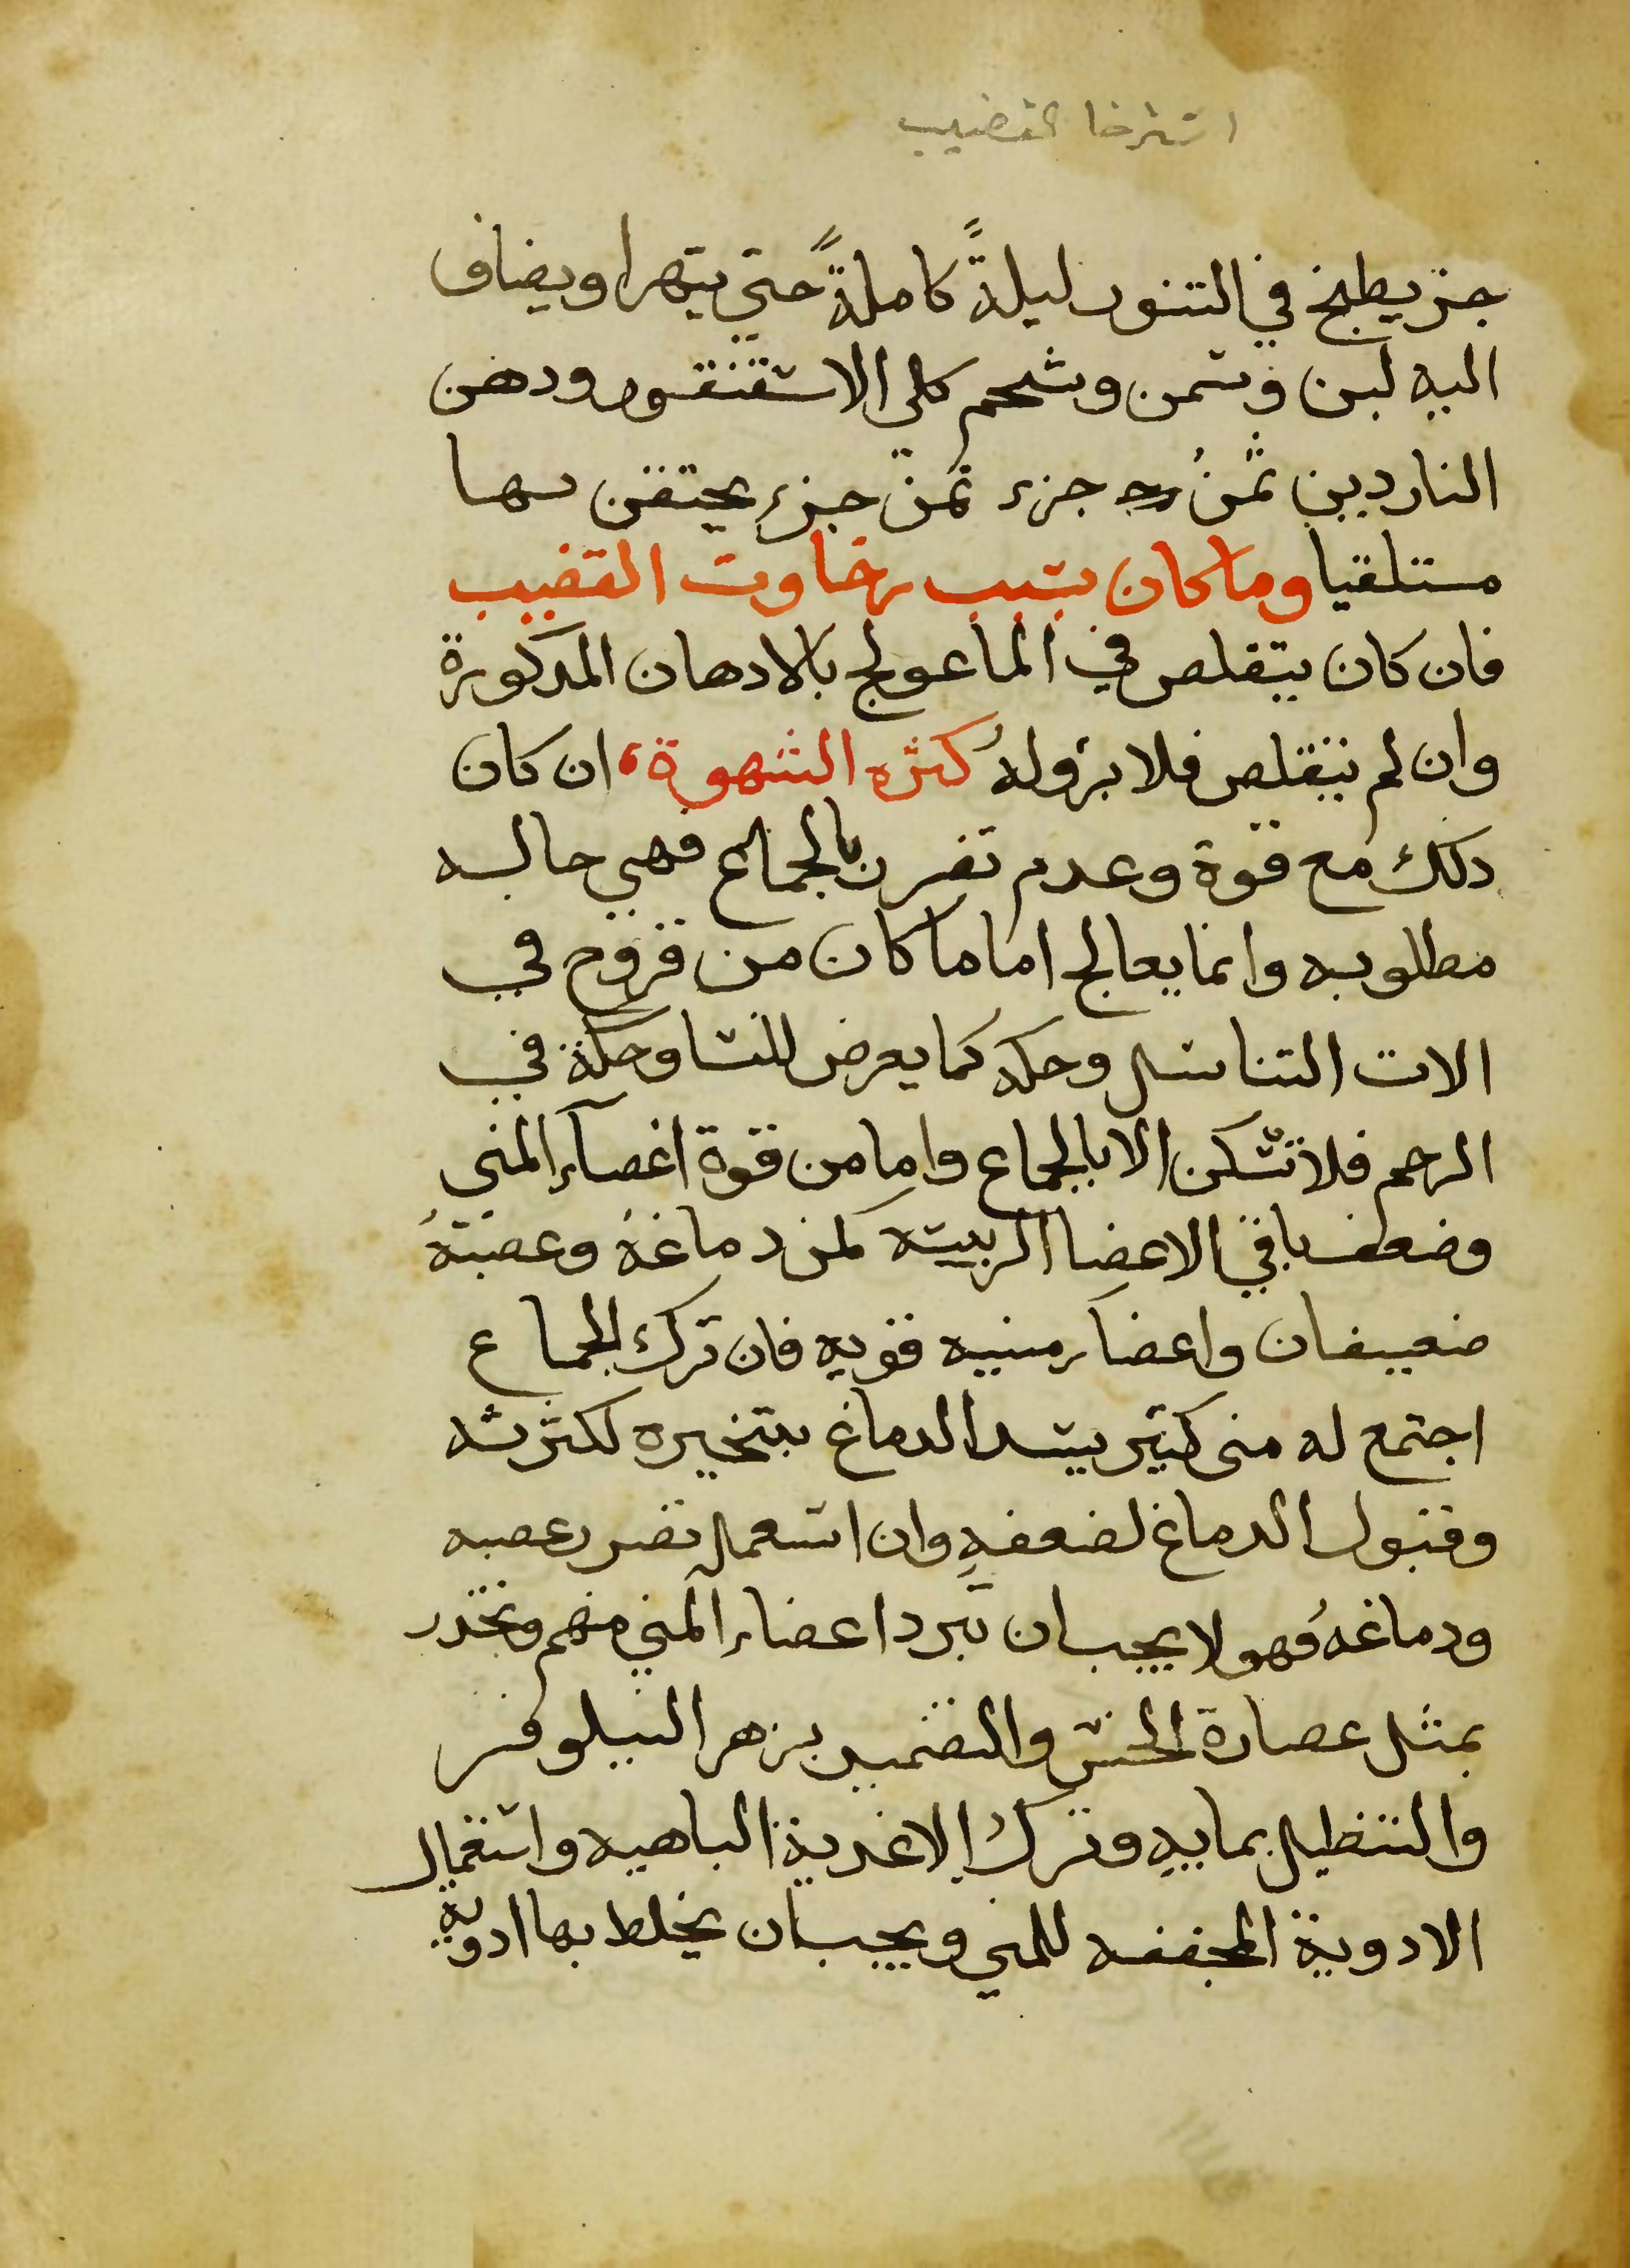 استرخا القضيب
جزر يطبخ في التنور ليلةً كاملةً حتي يتهرا ويضاف
اليه لبن وسمن وشحم كلي الاسقنقور ودهن
الناردين ثمنُ جزء ثمن جزء يحتقن بها
مستلقيا وما كان بسبب رخاوت القضيب
فان كان يتقلص في الما عولج بالادهان المدكورة
وان لم يتقلص فلا برؤ لهُ كثره الشهوة، ان كان
دلك مع قوة وعدم تضرر بالجماع فهي حاله
مطلوبه وانما يعالج اما ما كان من قروح في
الات التناسل وحكه كما يعرض للنسا وحكة في
الرحم فلا تسكن الا بالجماع واما من قوة اعضآء المني
وضعف باقي الاعضا الرييسه كمن دماغهُ وعصبهُ
ضعيفان واعضآء منيه قويه فان ترك الجماع
اجتمع له مني كثير يسد الدماغ بتبخيره لكثرته
وقبول الدماغ لضعفهِ وان استعمل تضرر عصبه
ودماغهُ فهولا يجب ان تبرد اعضاء المني منهم وتخدر
بمثل عصارة الخس والتضميد بزهر النيلوفر
والتنطيل بمايهِ وترك الاغدية الباهيه واستعمال
الادوية المجففه للمني ويجب ان يخلط بها ادوية